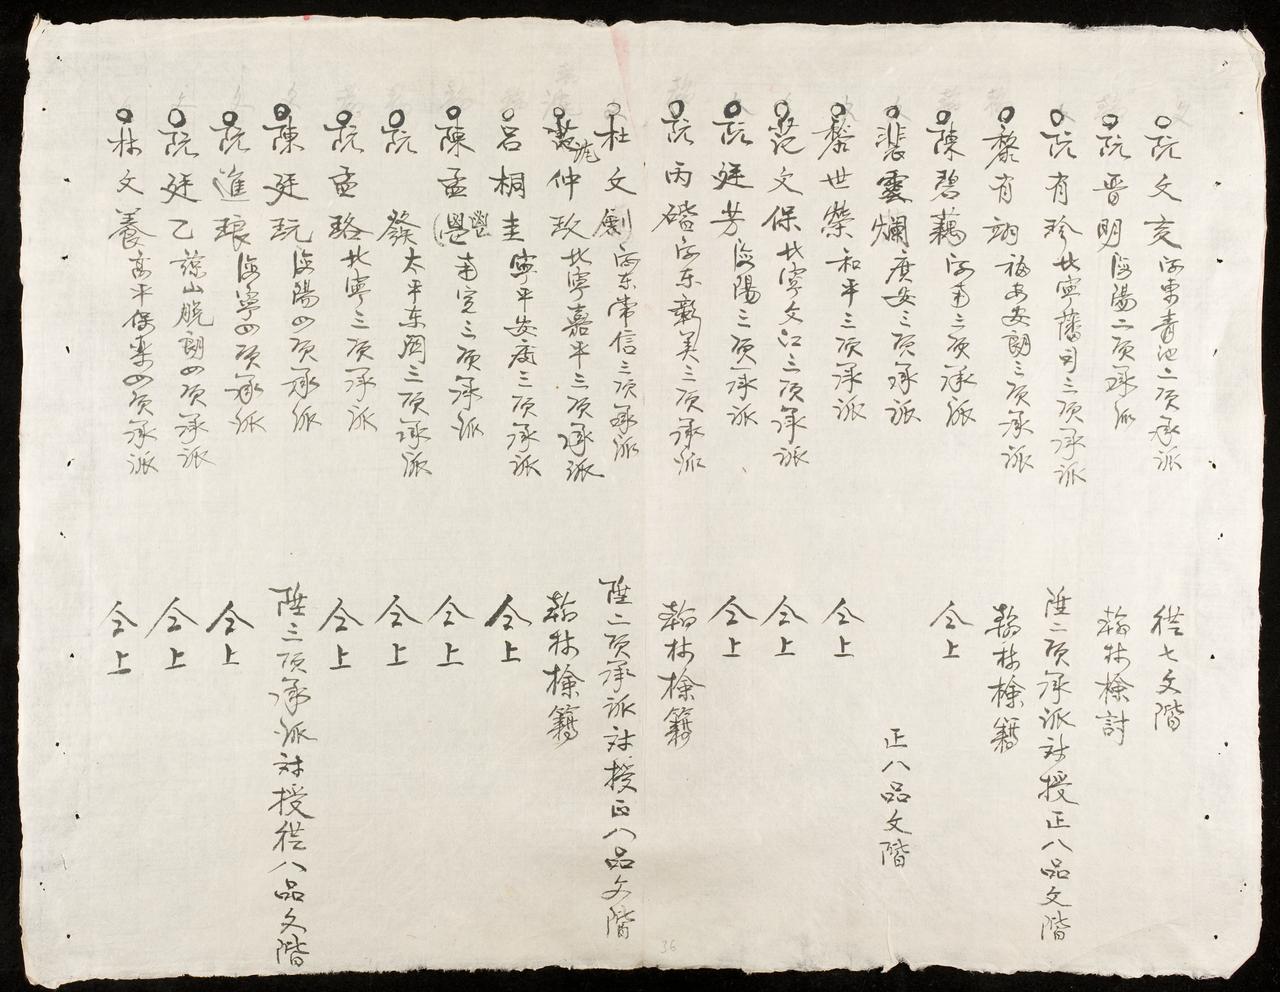 阮文亥河東青池二項承派 從七文階
阮晋明海陽二項承派 翰林檢討
阮有珍北寧藩司三項承派 陞二項承派対授正八品文階
黎有翊福安安朗三項承派 翰林檢籍
陳碧藕河南三項承派 仝上
裴雲爛廣安三項承派 正八品文階
黎世榮和平三項承派 仝上
范文保北寧文江三項承派 仝上
阮廷芳海陽三項承派 仝上
阮丙碏河东彰美三項承派 翰林檢籍
杜文劇河东常信三項承派 陞二項承派対授正八品文階
黃仲玫北寧嘉平三項承派 翰林檢籍
呂桐圭寧平安慶三項承派 仝上
陳孟南定三項承派 仝上
阮發太平东関三項承派 仝上
阮孟珞北寧三項承派 仝上
陳廷玩海陽四項承派 陞三項承派対授從八品文階
阮進琅海寧四項承派 仝上
阮廷乙諒山脱朗四項承派 仝上
杜文養高平保樂四項承派 仝上
36